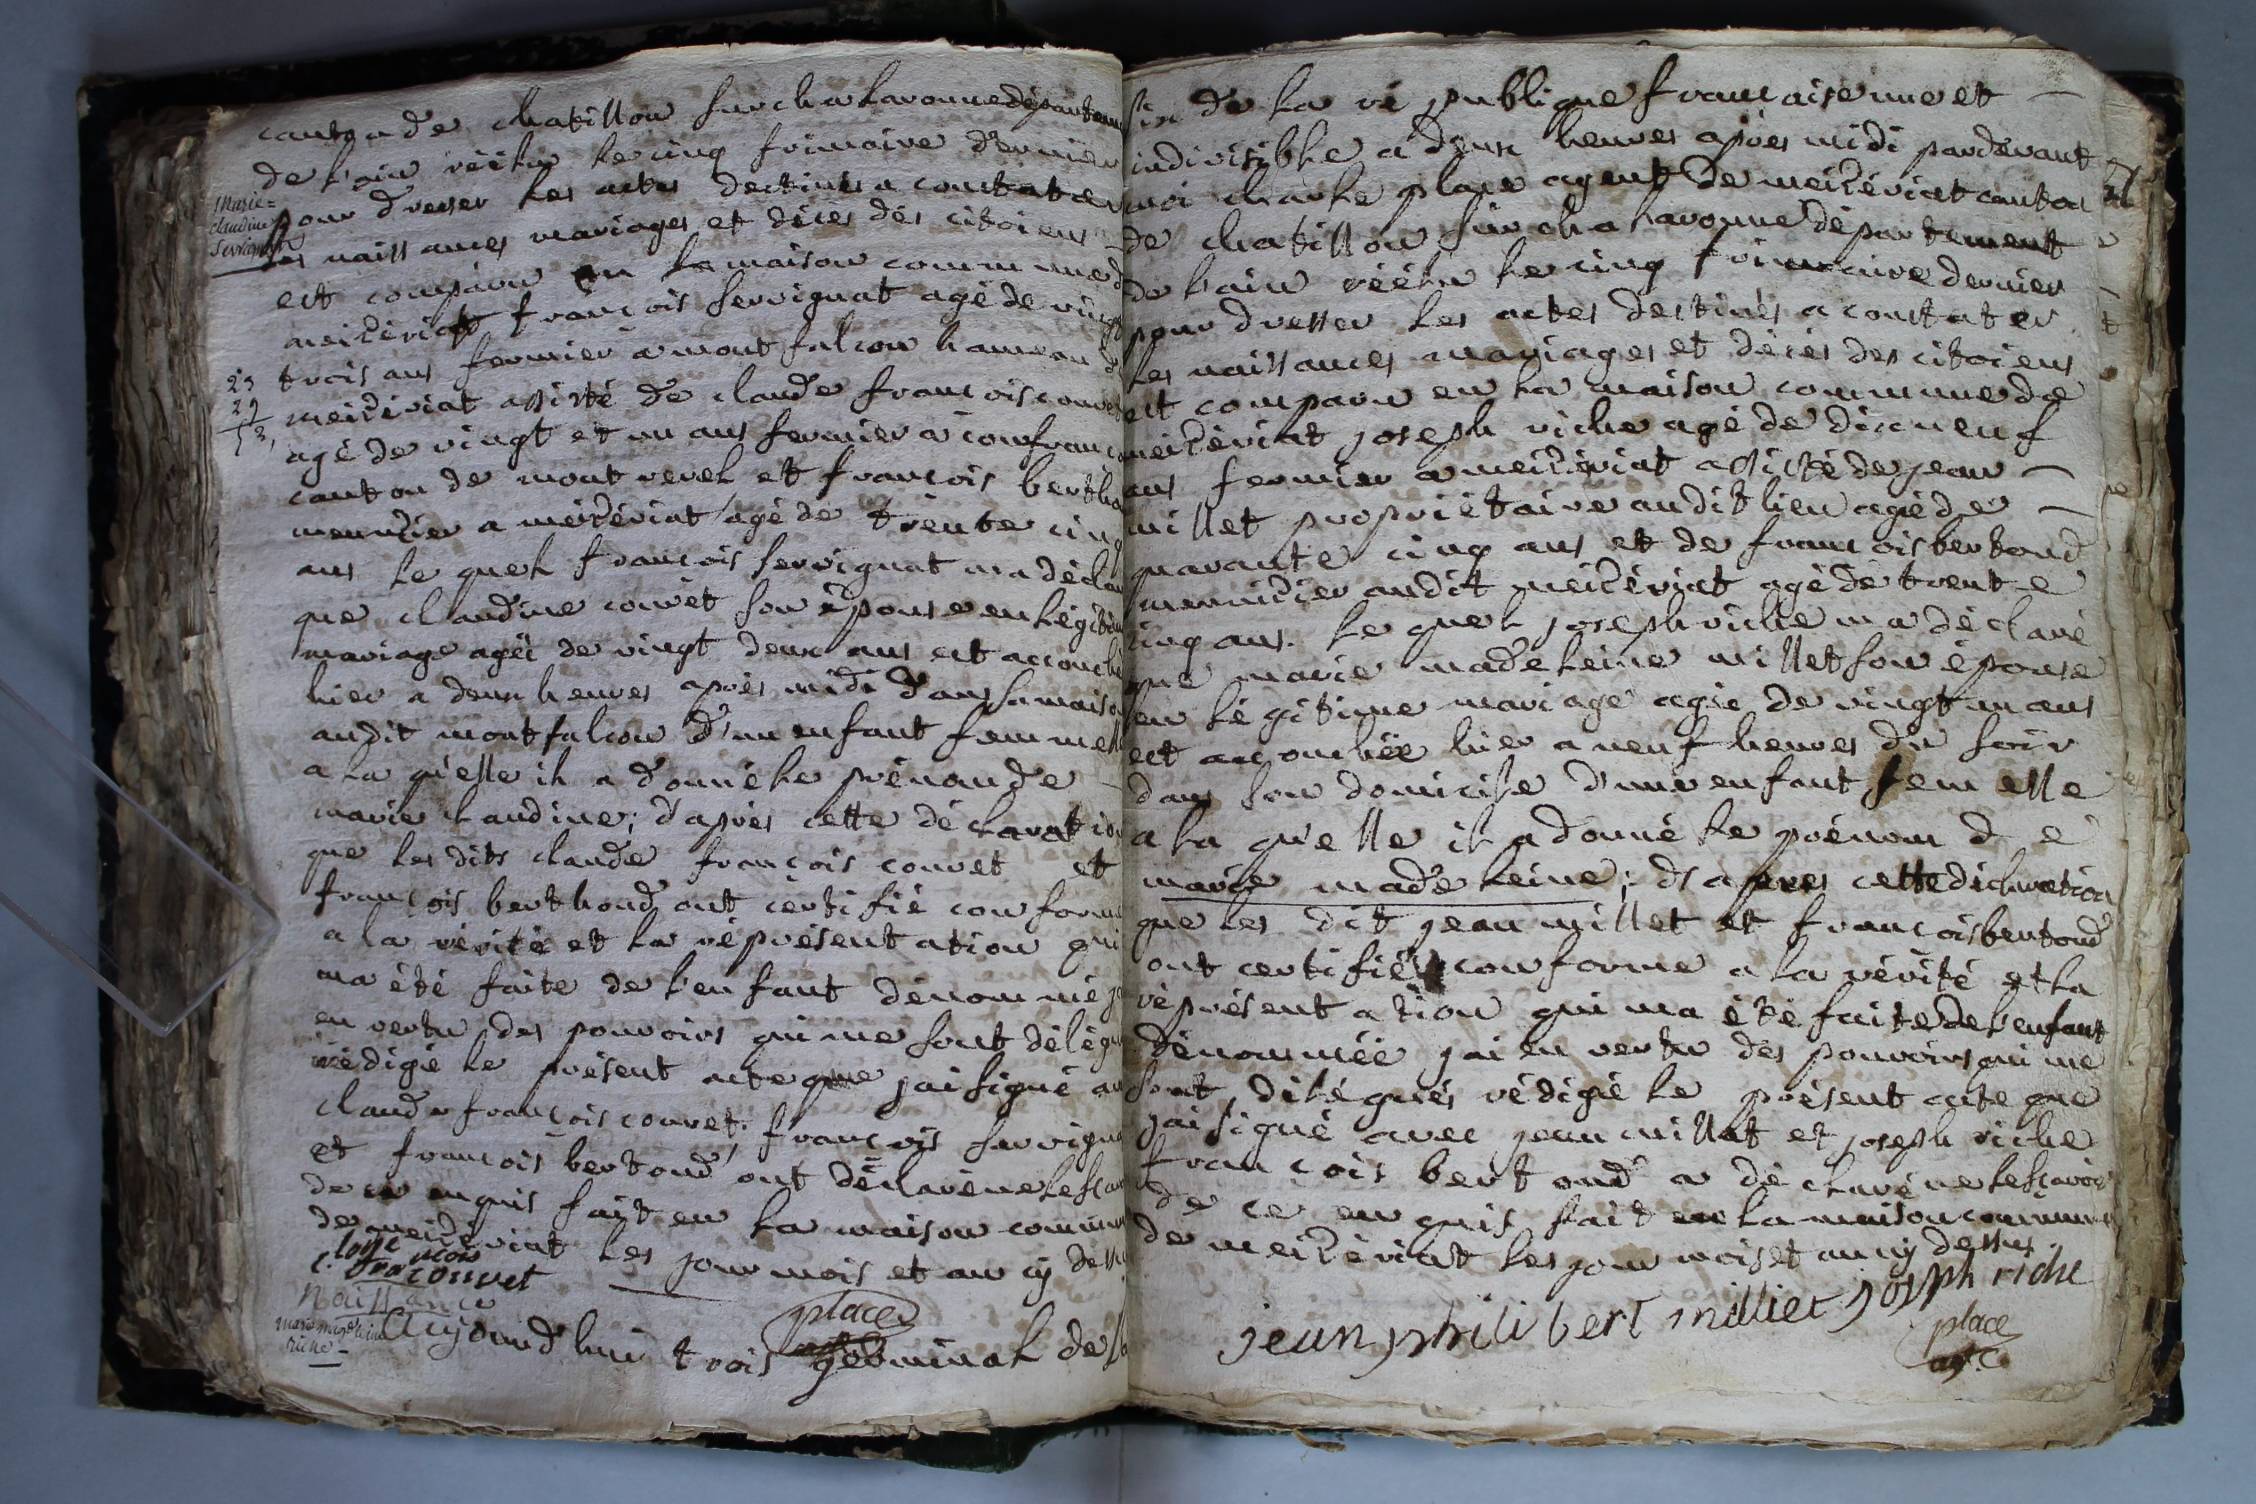 canton de chatillon sur chalaronne départem
de l'ain réélu le cinq frimaire dernier
Marie=
claudine
Servignat
pour dresser les actes destinés a constater
les naissances mariages et décés des citoiens
est comparu en la maison commune d
meizériat françois servignat agé de vingt
trois ans fermier a montfalcon hameau d
23
29
meizériat assisté de claude françois couvet
agé de vingt et un ans fermier a confranç
canton de montrevel et françois bertho
meunier a meizériat agé de trente cinq
ans le quel françois servignat ma déclar
que claudine couvet son épouse en légitim
mariage agée de vingt deux ans est accouché
hier a deux heures après midi dans sa maiso
audit montfalcon d'un enfant femmelle
a la qu'elle il a donné le prénom de
marie claudine; d'après cette déclaration
que les dits claude françois couvet et
françois berthoud ont certifié conforme
a la vérité et la représentation qui
ma été faite de l'enfant dénommé j
en vertu des pouvoirs qui me sont délégu
rédigé le présent acte que jai signé av
claude françois couvet, françois servigna
et françois bertoud ont déclaré ne le sçav
de ce enquis fait en la maison commun
de meizériat les jour mois et an cy dessu
c. françois couvet
place
agt
Naissance
marie magdelaine
riche
Aujourd'hui trois germinal de l'
six de la république française une et
indivisible a deux heures après midi pardevant
moi charle place agent de meizériat canton
de chatillon sur chalaronne département
de l'ain réélu le cinq frimaire dernier
pour dresser les actes destinés a constater
les naissances mariages et décés des citoiens
est comparu en la maison commune de
meizériat joseph riche agé de dix neuf
ans fermier a meizériat assisté de jean
millet propriétaire audit lieu agé de
quarante cinq ans et de françois bertoud
meunier audit meizériat agé de trente
cinq ans. le quel joseph riche ma déclaré
que marie madeleine millet son épouse
en légitime mariage agée de vingt un ans
est accouchée hier a neuf heures du soir
dans son domicile d'une enfant femelle
a la qu'elle il a donné le prénom de
marie madeleine; d'apres cette déclaration
que les dit jean millet et françois bertoud
ont certifié conforme a la vérité et la
représentation qui ma été faite de l'enfant
dénommée jai en vertu des pouvoirs qui me
sont délégués rédigé le présent acte que
jai signé avec jean millet et joseph riche
françois bertoud a déclaré ne le sçavoir
de ce enquis fait en la maison commune
de meizériat les jour mois et an cy dessus.
jean philibert millier joseph riche
place
agt.